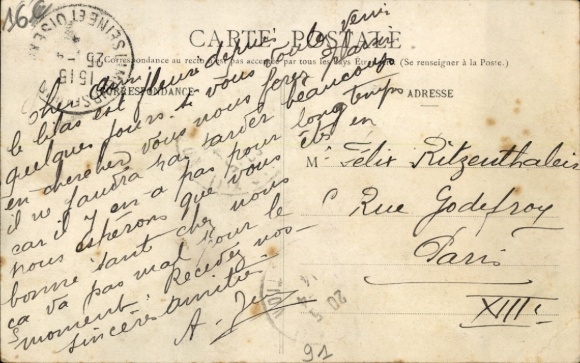 16C
CARTE POSTALE
(Correspondance au recto n'est pas acceptée par tous les pays Étrangers. (Se renseigner à la Poste.)
CORRESPONDANCE
ADRESSE
SEINE ET OISE
15 15
25 - 4
Cher Ami
le lilas est fleuri depuis
quelques jours. Si vous voulez venir
en chercher vous nous ferez plaisir
il ne faudra pas tarder beaucoup
car il y en a pas pour longtemps
nous espérons que vous êtes en
bonne santé chez nous
ça va pas mal pour le
moment. Recevez nos
sincères amitiés
A.
Mr Félix Ritzenthaler
5 Rue Godefroy
Paris
XIIIe
20
91